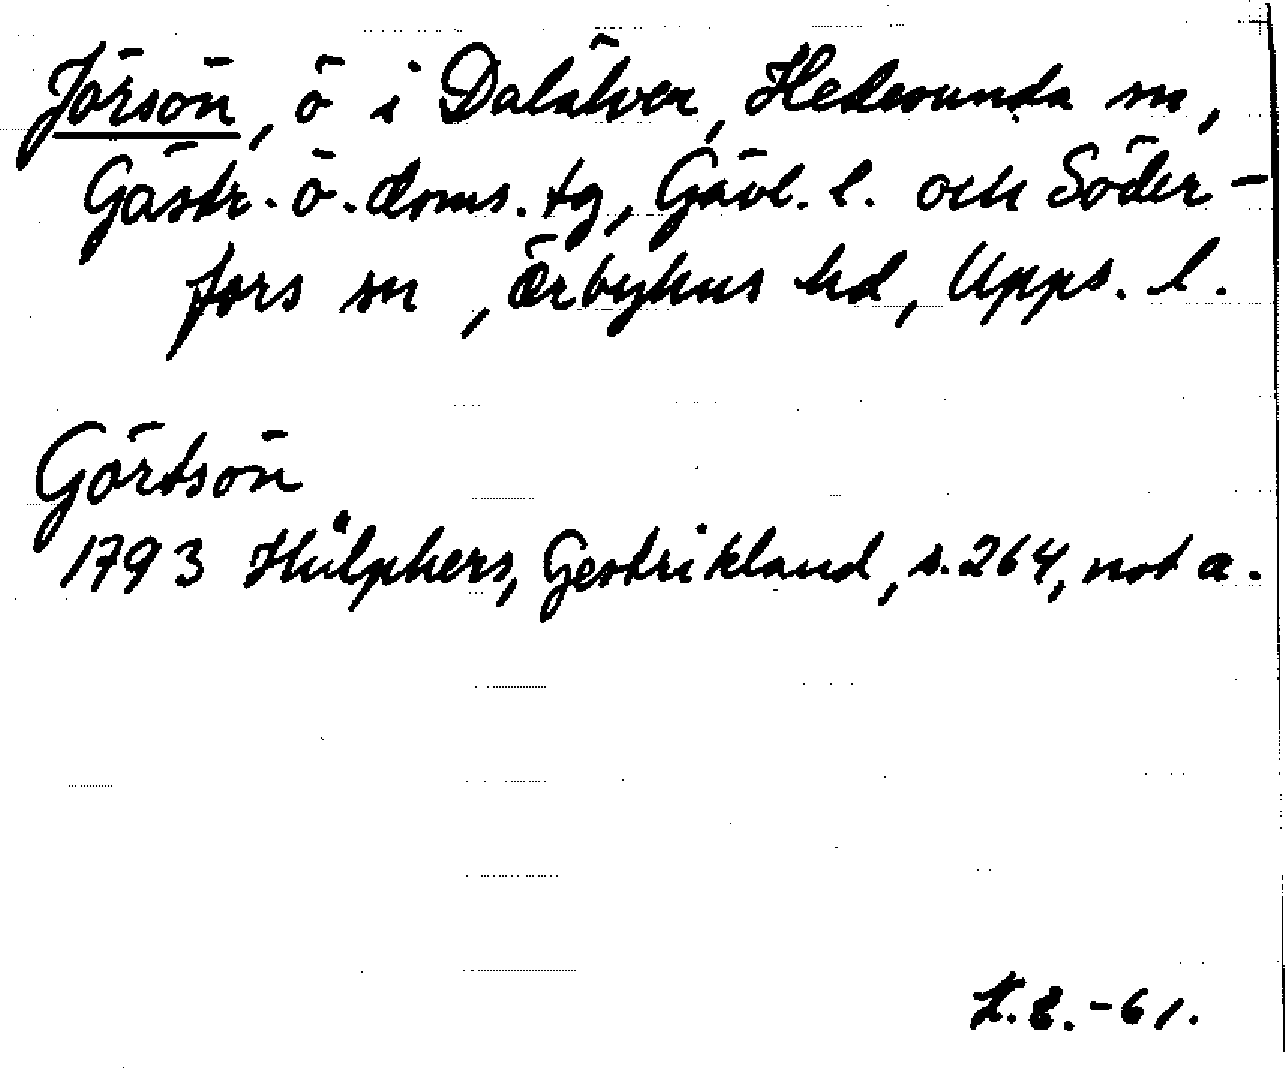 Jörsön, ö i Dalälven, Hedesunda sn,
Gästr. ö. doms. tg, Gävl. l. och Söder-
fors sn, Örbyhus hd, Upps. l.
Görtsön
1793 Hülphers, Gestrikland, s. 264, not a.
-61.